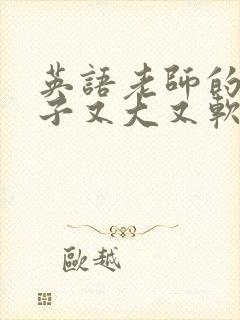 英語老師的
子又大又軟
歐越